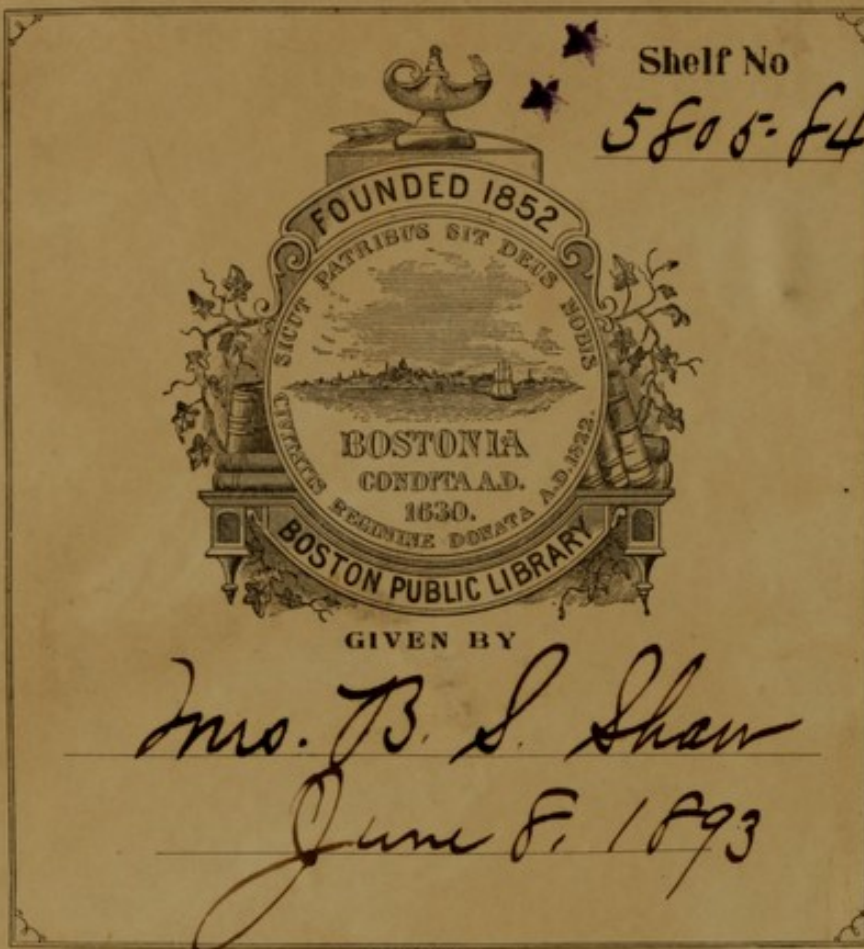 Shelf No
5805-84
FOUNDED 1852
SICUT PATRIBUS SIT DEUS NOBIS
BOSTONIA
CONDITA A.D.
1630.
CIVITATIS REGIMINE DONATA A.D. 1822.
BOSTON PUBLIC LIBRARY
GIVEN BY
Mrs. B. S. Shaw
June 8, 1893